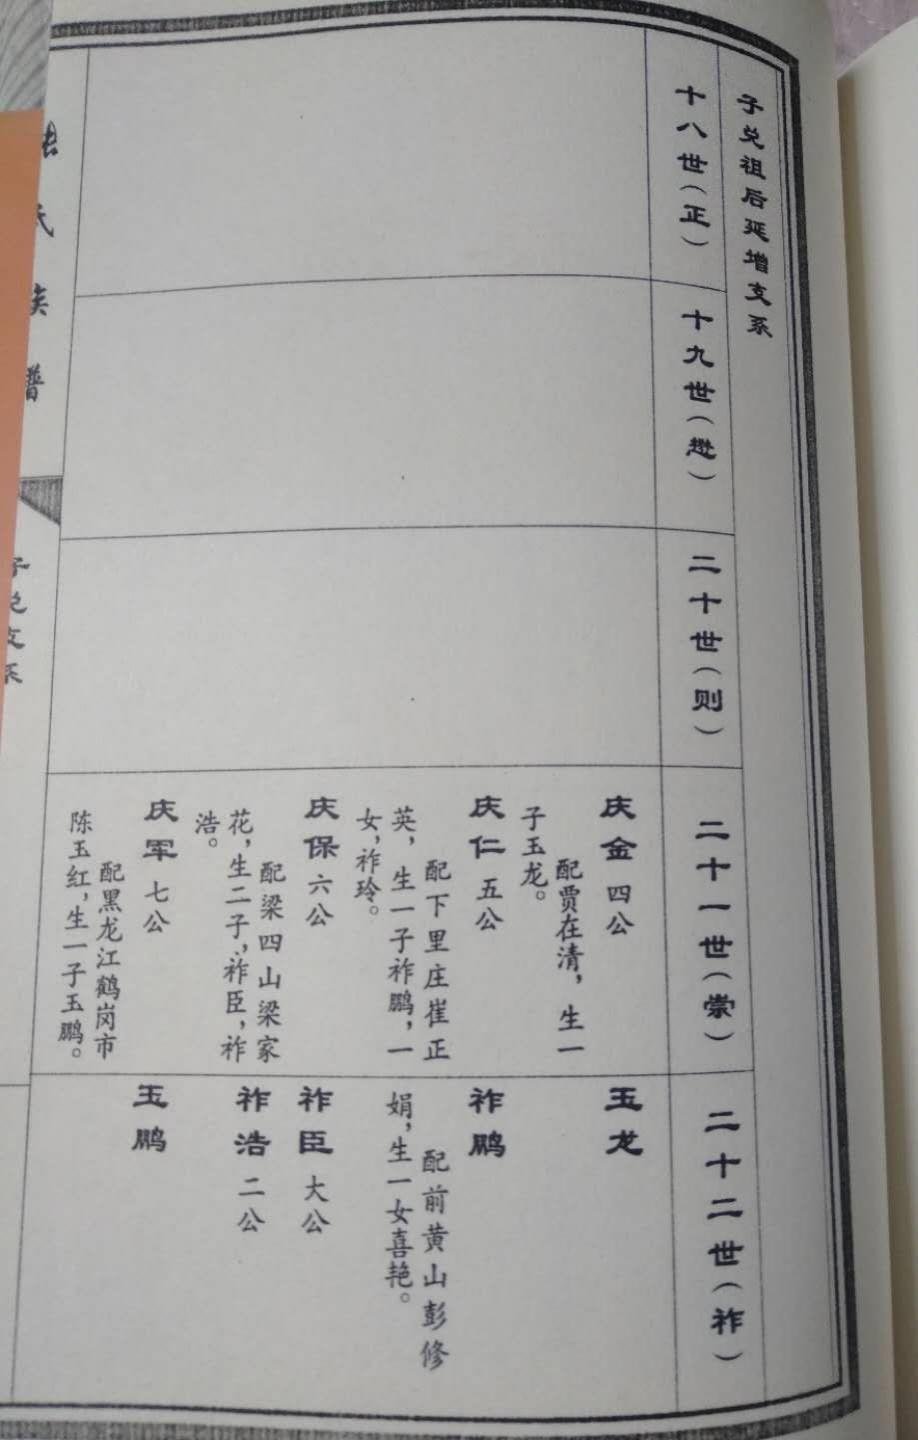 子兑祖后延增支系
十八世（正）
十九世（懋）
二十世（则）
二十一世（崇）
二十二世（祚）
庆金 四公
配贾在清，生一
子玉龙。
庆仁 五公
配下里庄崔正
英，生一子祚鹏，一
女，祚玲。
庆保 六公
配梁四山梁家
花，生二子，祚臣，祚
浩。
庆军 七公
配黑龙江鹤岗市
陈玉红，生一子玉鹏。
玉龙
祚鹏
配前黄山彭修
娟，生一女喜艳。
祚臣 大公
祚浩 二公
玉鹏
张氏族谱
子兑支系